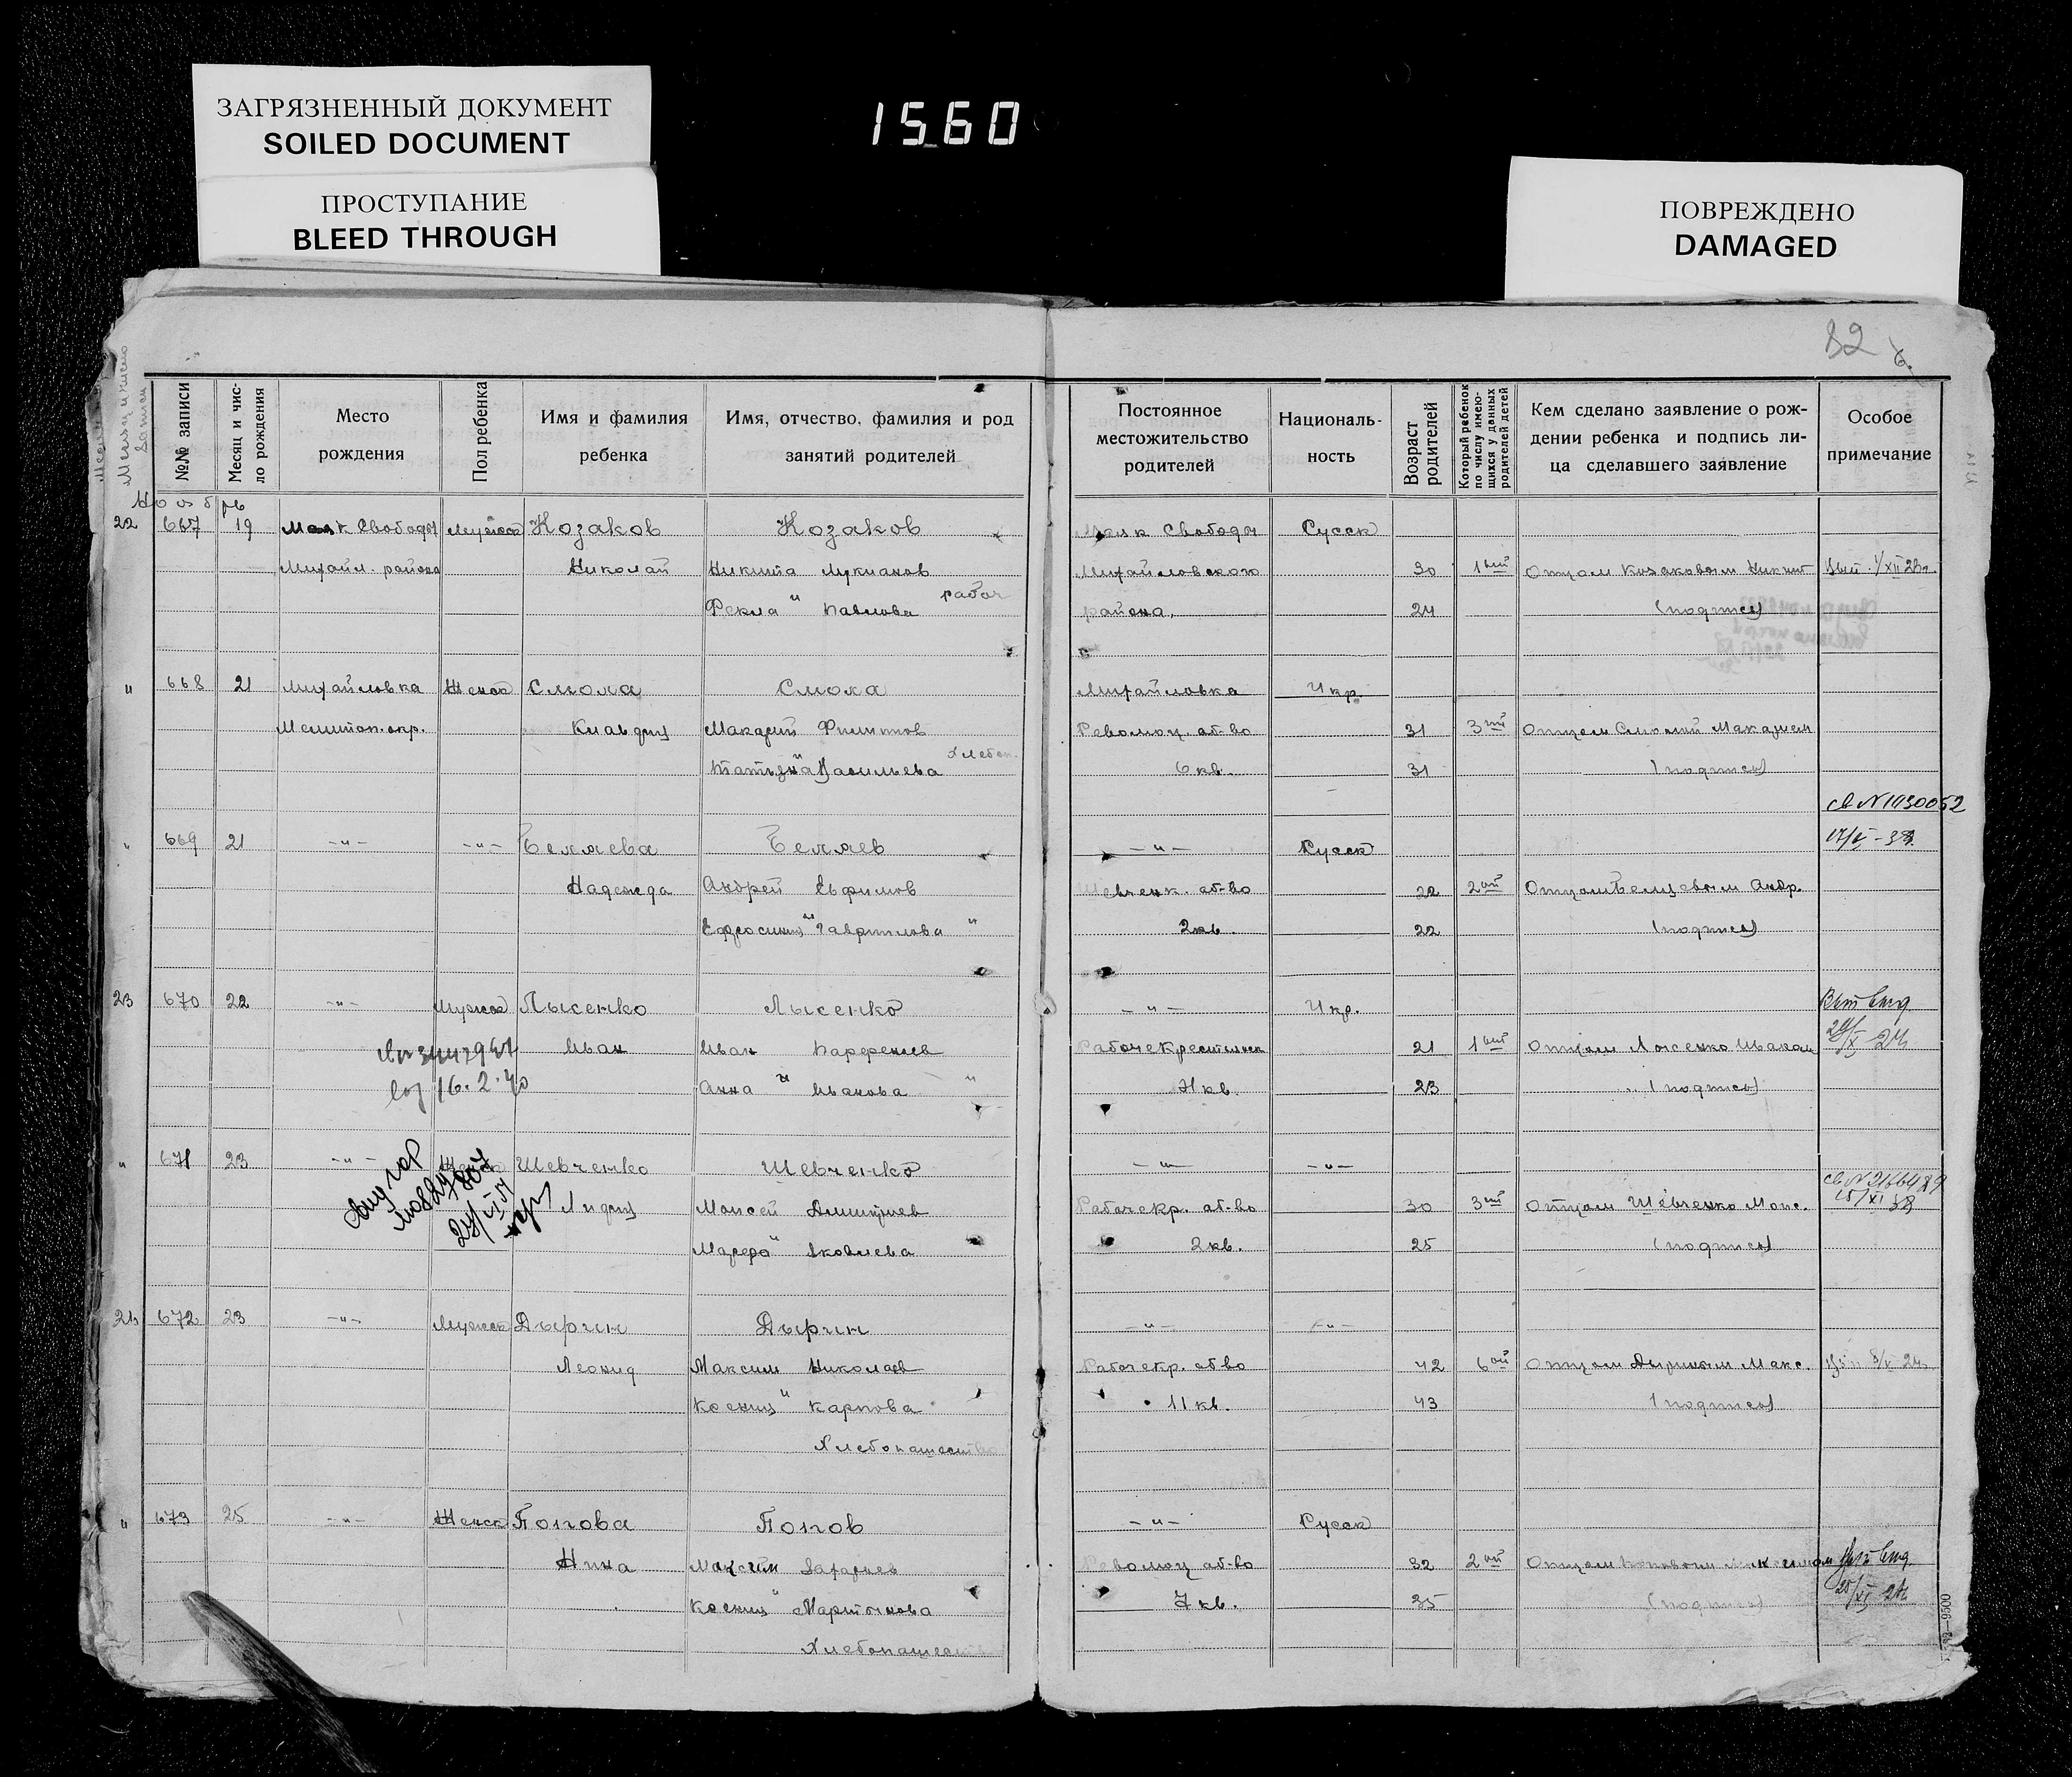 ЗАГРЯЗНЕННЫЙ ДОКУМЕНТ
SOILED DOCUMENT
ПРОСТУПАНИЕ
BLEED THROUGH
1560
ПОВРЕЖДЕНО
DAMAGED
82
№№ записи
Месяц и число рождения
Место рождения
Пол ребенка
Имя и фамилия ребенка
Имя, отчество, фамилия и род занятий родителей
Постоянное местожительство родителей
Националь-ность
Возраст родителей
Который ребенок по числу имею-щихся у данных родителей детей
Кем сделано заявление о рож-дении ребенка и подпись ли-ца сделавшего заявление
Особое примечание
Ноябрь
22 667 19 Маяк Свободы Мужск Козаков Козаков Маяк Свободы Русск
Михайл. района Николай Никита Лукианов Михайловского 30 1ый Отцом Козаковым Никит
Фекла " Павлова рабоч района, 24 (подпись)
" 668 21 Михайловка Женск Смола Смола Михайловка Укр.
Мелитоп. окр. Клавдия Макарий Филиппов Революц. об-во 31 3ий Отцом Смолий Макарием
Татьяна Васильева Хлебоп. 6 кв. 31 (подпись)
св №1130052
" 669 21 -"- -"- Беляева Беляев -"- Русск
Надежда Андрей Ефимов Шевченк. об-во 22 2ой Отцом Беляевым Андр.
Ефросиния " Гаврилова " 2 кв. 22 (подпись)
23 670 22 -"- Мужск Лысенко Лысенко -"- Укр.
Иван Иван Парфениев Рабочекрестьянск 21 1ый Отцом Лысенко Иваном
16.2.40 Анна " Иванова " 7 кв. 23 (подпись)
" 671 23 -"- Женск Шевченко Шевченко -"- -"-
Лидия Моисей Дмитриев Рабочекр. об-во 30 3ий Отцом Шевченко Моис.
Марфа " Яковлева 2 кв. 25 (подпись)
24 672 23 -"- Мужск Дырин Дырин -"- -"-
Леонид Максим Николаев Рабочекр. об-во 42 6ой Отцом Дыриным Макс.
Ксения " Карпова 11 кв. 43 (подпись)
Хлебопашество
" 673 25 -"- Женск Попова Попов -"- Русск
Нина Максим Революц об-во 32 2ой Отцом Поповым Максимом
Ксения " Мартынова 7 кв. 35 (подпись)
Хлебопашеств